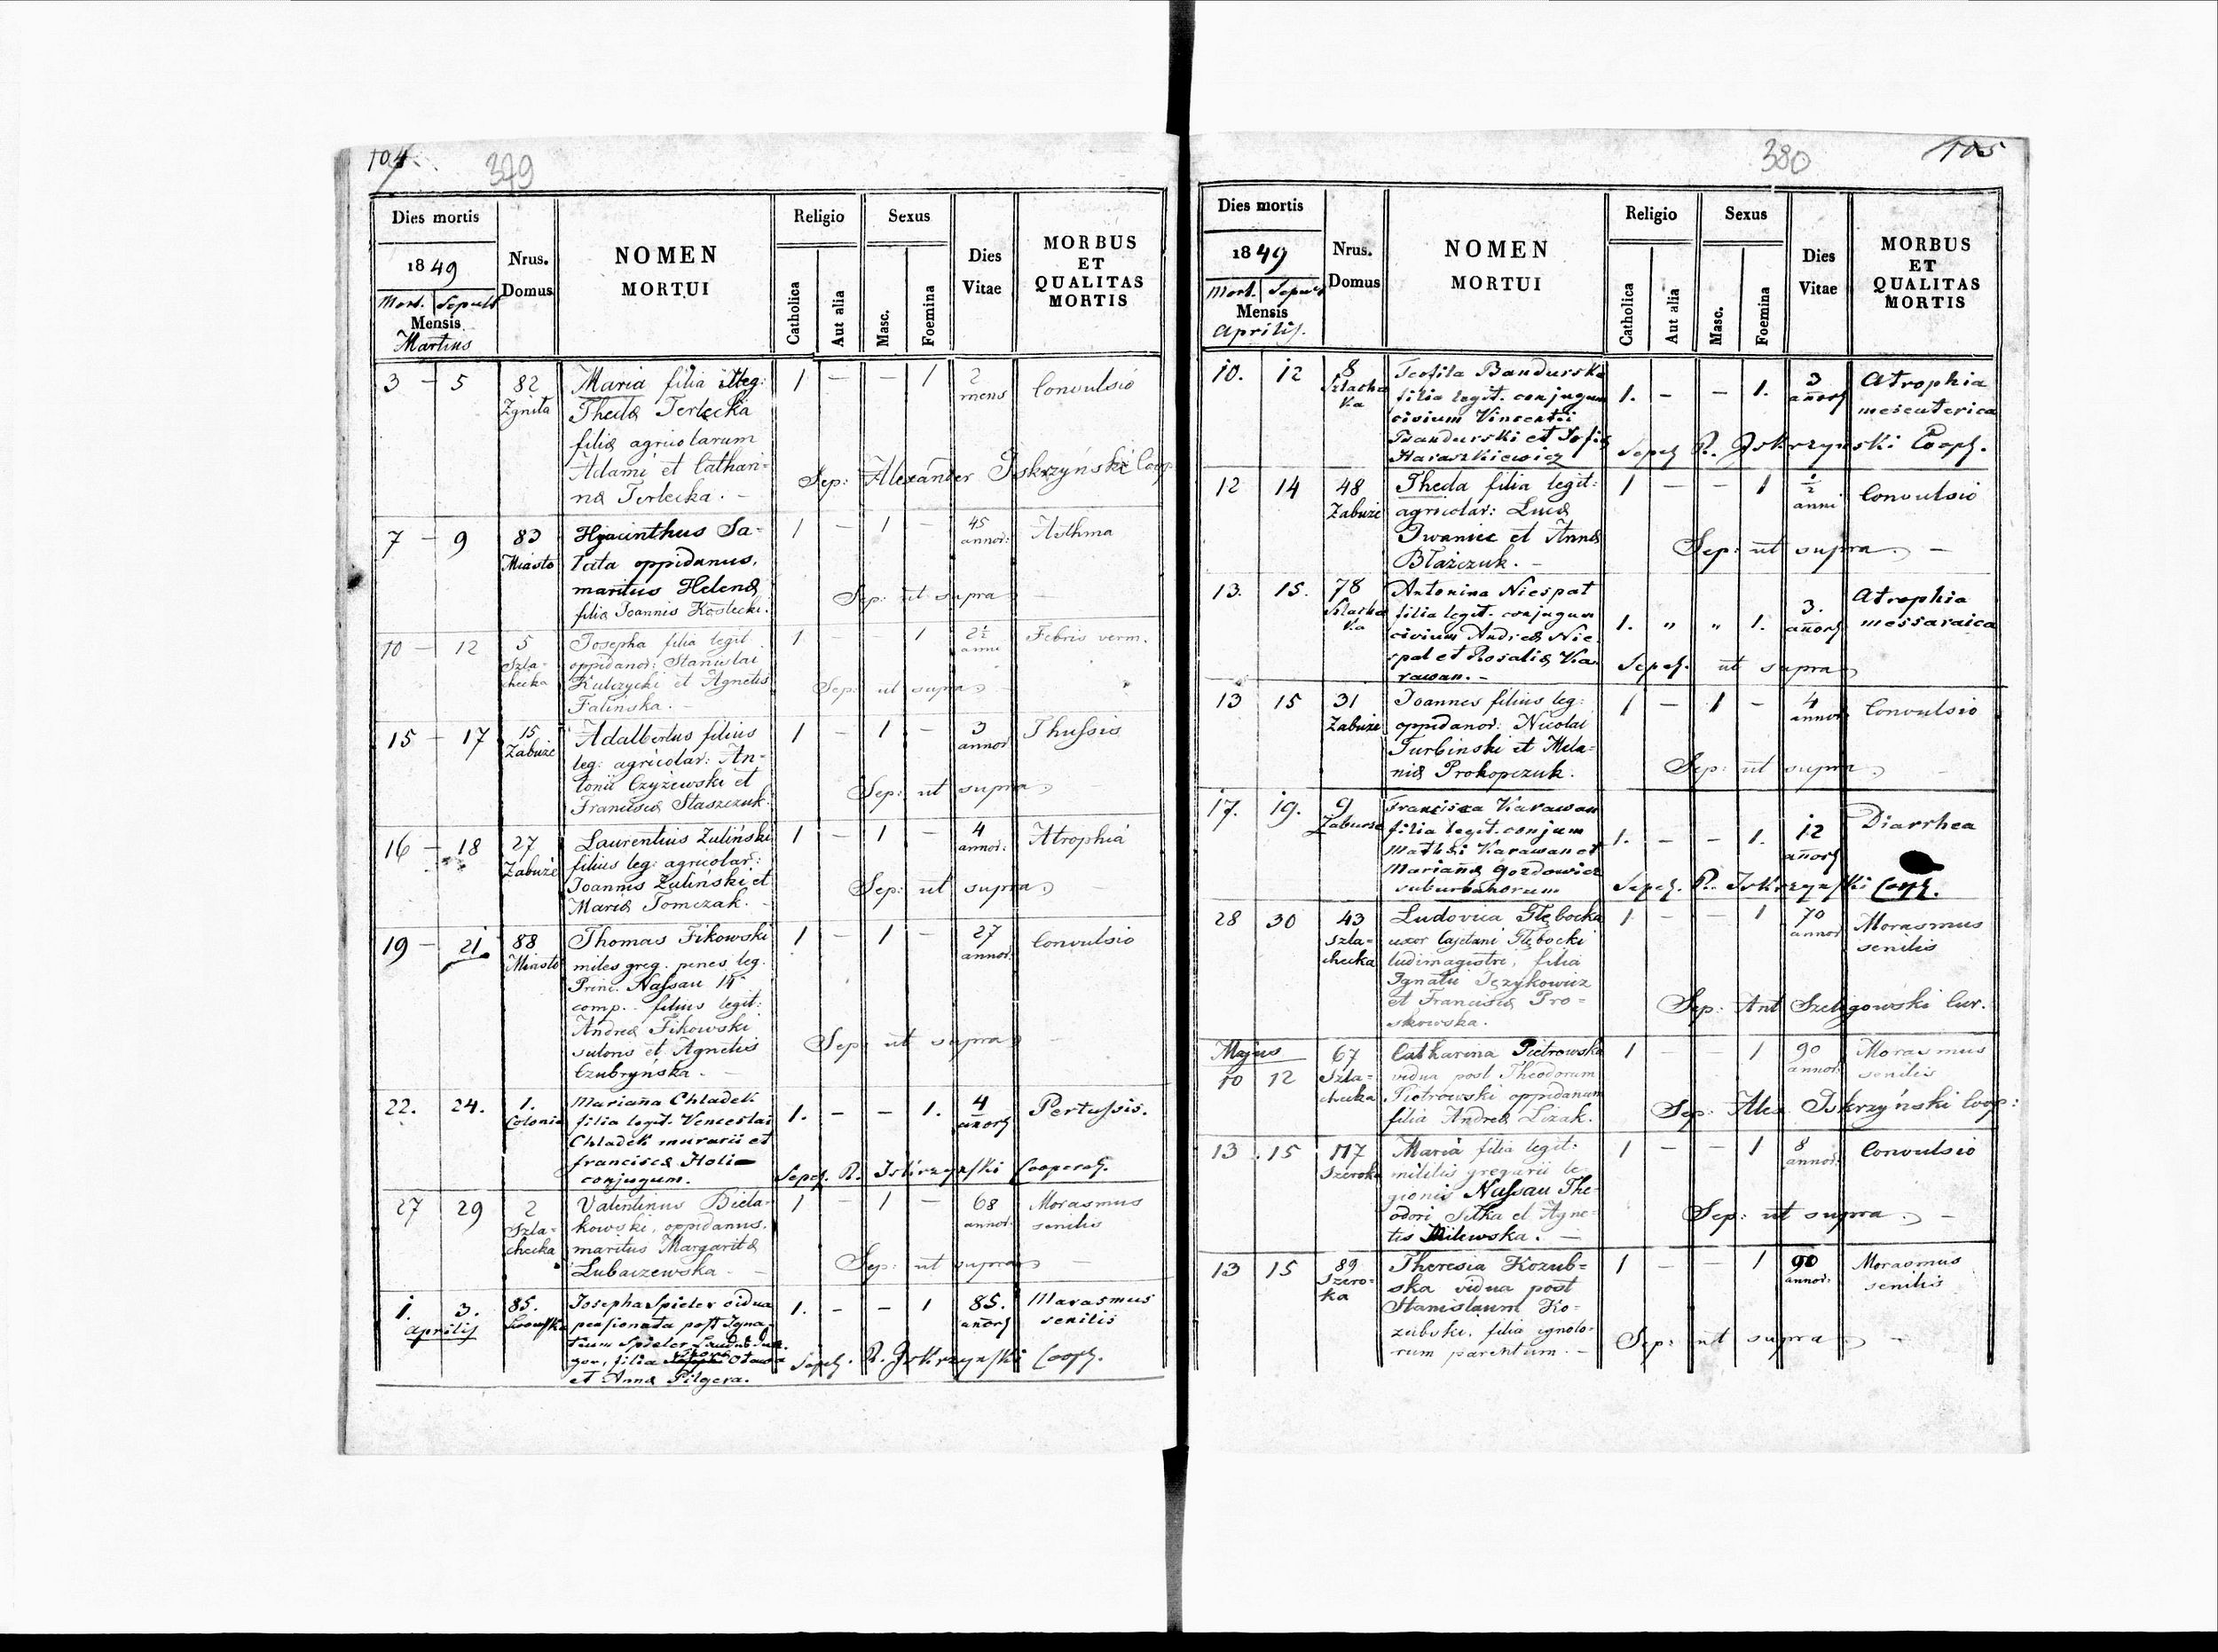 104
379
Dies mortis
Nrus. Domus
NOMEN MORTUI
Religio
Sexus
Dies Vitae
MORBUS ET QUALITAS MORTIS
1849
Mort. Sepult
Mensis
Martius
Catholica
Aut alia
Masc.
Foemina
3 – 5 82 Maria filia illeg: 1 – – 1 2 Convulsio
Zgniła Theclæ Terlecka mens
filiæ agricolarum
Adami et Cathari-
næ Terlecka. – Sep: Alexander Iskrzyński Coop
7 – 9 83 Hyacinthus Sa- 1 – 1 – 45 Asthma
Miasto łata oppidanus, annor:
maritus Helenæ
filiæ Joannis Kostecki. Sep: ut supra
10 – 12 5 Josepha filia legit. 1. 1 2½ Febris verm.
Szla- oppidanor: Stanislai anni
checka Kulczycki et Agnetis
Falinska. – Sep: ut supra
15 – 17 15 Adalbertus filius 1 – 1 – 3 Thussis
Zabuże leg: agricolar: An- annor
tonii Czyżewski et
Franciscæ Staszczuk. Sep: ut supra
16 – 18 27 Laurentius Zuliński 1 – 1 – 4 Atrophia
Zabuże filius leg: agricolar: annor:
Joannis Zuliński et
Mariæ Tomczak. – Sep: ut supra
19 – 21. 88 Thomas Fikowski 1 – 1 – 27 Convulsio
Miasto miles greg. penes leg. annor:
Princ. Nassau 14
comp. filius legit:
Andreæ Fikowski
sutoris et Agnetis
Czubryńska. – Sep: ut supra
22. 24. 1. Marianna Chladek 1. – – 1. 4 Pertussis.
Colonia filia legit. Venceslai annor
Chladek murarii et
Franciscæ Holi
conjugum. Sepel. R. Iskrzynski Cooperat.
27 29 2 Valentinus Biela- 1 – 1 – 68 Morasmus
Szla- kowski, oppidanus, annor. senilis
checka maritus Margaritæ
Lubaczewska – Sep: ut supra
1. 3. 85. Josepha Spieler vidua 1. – – 1 85. Marasmus
Aprilis pensionata post Igna- annor senilis
tium Spieler
filia
et Annæ Pilgera. Sepel. R. Iskrzynski Coop.
380
105
Dies mortis
Nrus. Domus
NOMEN MORTUI
Religio
Sexus
Dies Vitae
MORBUS ET QUALITAS MORTIS
1849
Mort. Sepult
Mensis
Aprilis.
Catholica
Aut alia
Masc.
Foemina
10. 12 8 Teofila Bandurska 1. – – 1. 3 Atrophia
Szlachecka filia legit. conjugum annor meseuterica
civium Vincentii
Bandurski et Sofiæ
Haraszkiewicz Sepel R. Iskrzynski Coop.
12 14 48 Thecla filia legit: 1 – – 1 ½ Convulsio
Zabuże agricolar: Lucæ anni
Iwaniec et Annæ
Błażczuk. – Sep: ut supra. –
13. 15. 78 Antonina Niespał 1. " " 1. 3. Atrophia
filia legit. conjugum annor messaraica
civium Andreæ Nie-
spal et Rosaliæ Ka-
rawan. – Sepel. ut supra
13 15 31 Joannes filius leg: 1 – 1 – 4 Convulsio
Zabuże oppidanor: Nicolai annor
Turbinski et Mela-
niæ Prokopczuk. Sep: ut supra
17. 19. 9 Francisca Karawan 1. – – 1. 12 Diarrhea
Zabuże filia legit. conjum annor
Mathei Karawan et
Mariannæ Gozdowicz
suburbanorum Sepel. R. Iskrzynski Coop.
28 30 43 Ludovica Głębocka 1 – – 1 70 Morasmus
Szla- uxor Cajetani Głębocki annor senilis
checka ludimagistri, filia
Ignatii Językowicz
et Franciscæ Pro-
skowska. Sep: Ant Szeligowski Cur.
Majus 67 Catharina Pietrowska 1 – – 1 90 Morasmus
10 12 Szla- vidua post Theodorum annor: senilis
checka Pietrowski oppidanum
filia Andreæ Lizak. Sep: Alex Iskrzyński Coop:
13 15 117 Maria filia legit: 1 – – 1 8 Convulsio
Szeroka militis gregarii le- annor:
gionis Nassau The-
odori Sitka et Agne-
tis Milewska. – Sep: ut supra. –
13 15 89 Theresia Kozub- 1 – – 1 90 Morasmus
Szero- ska vidua post annor: senilis
ka Stanislaum Ko-
zubski, filia ignoto-
rum parentum. – Sep: ut supra –